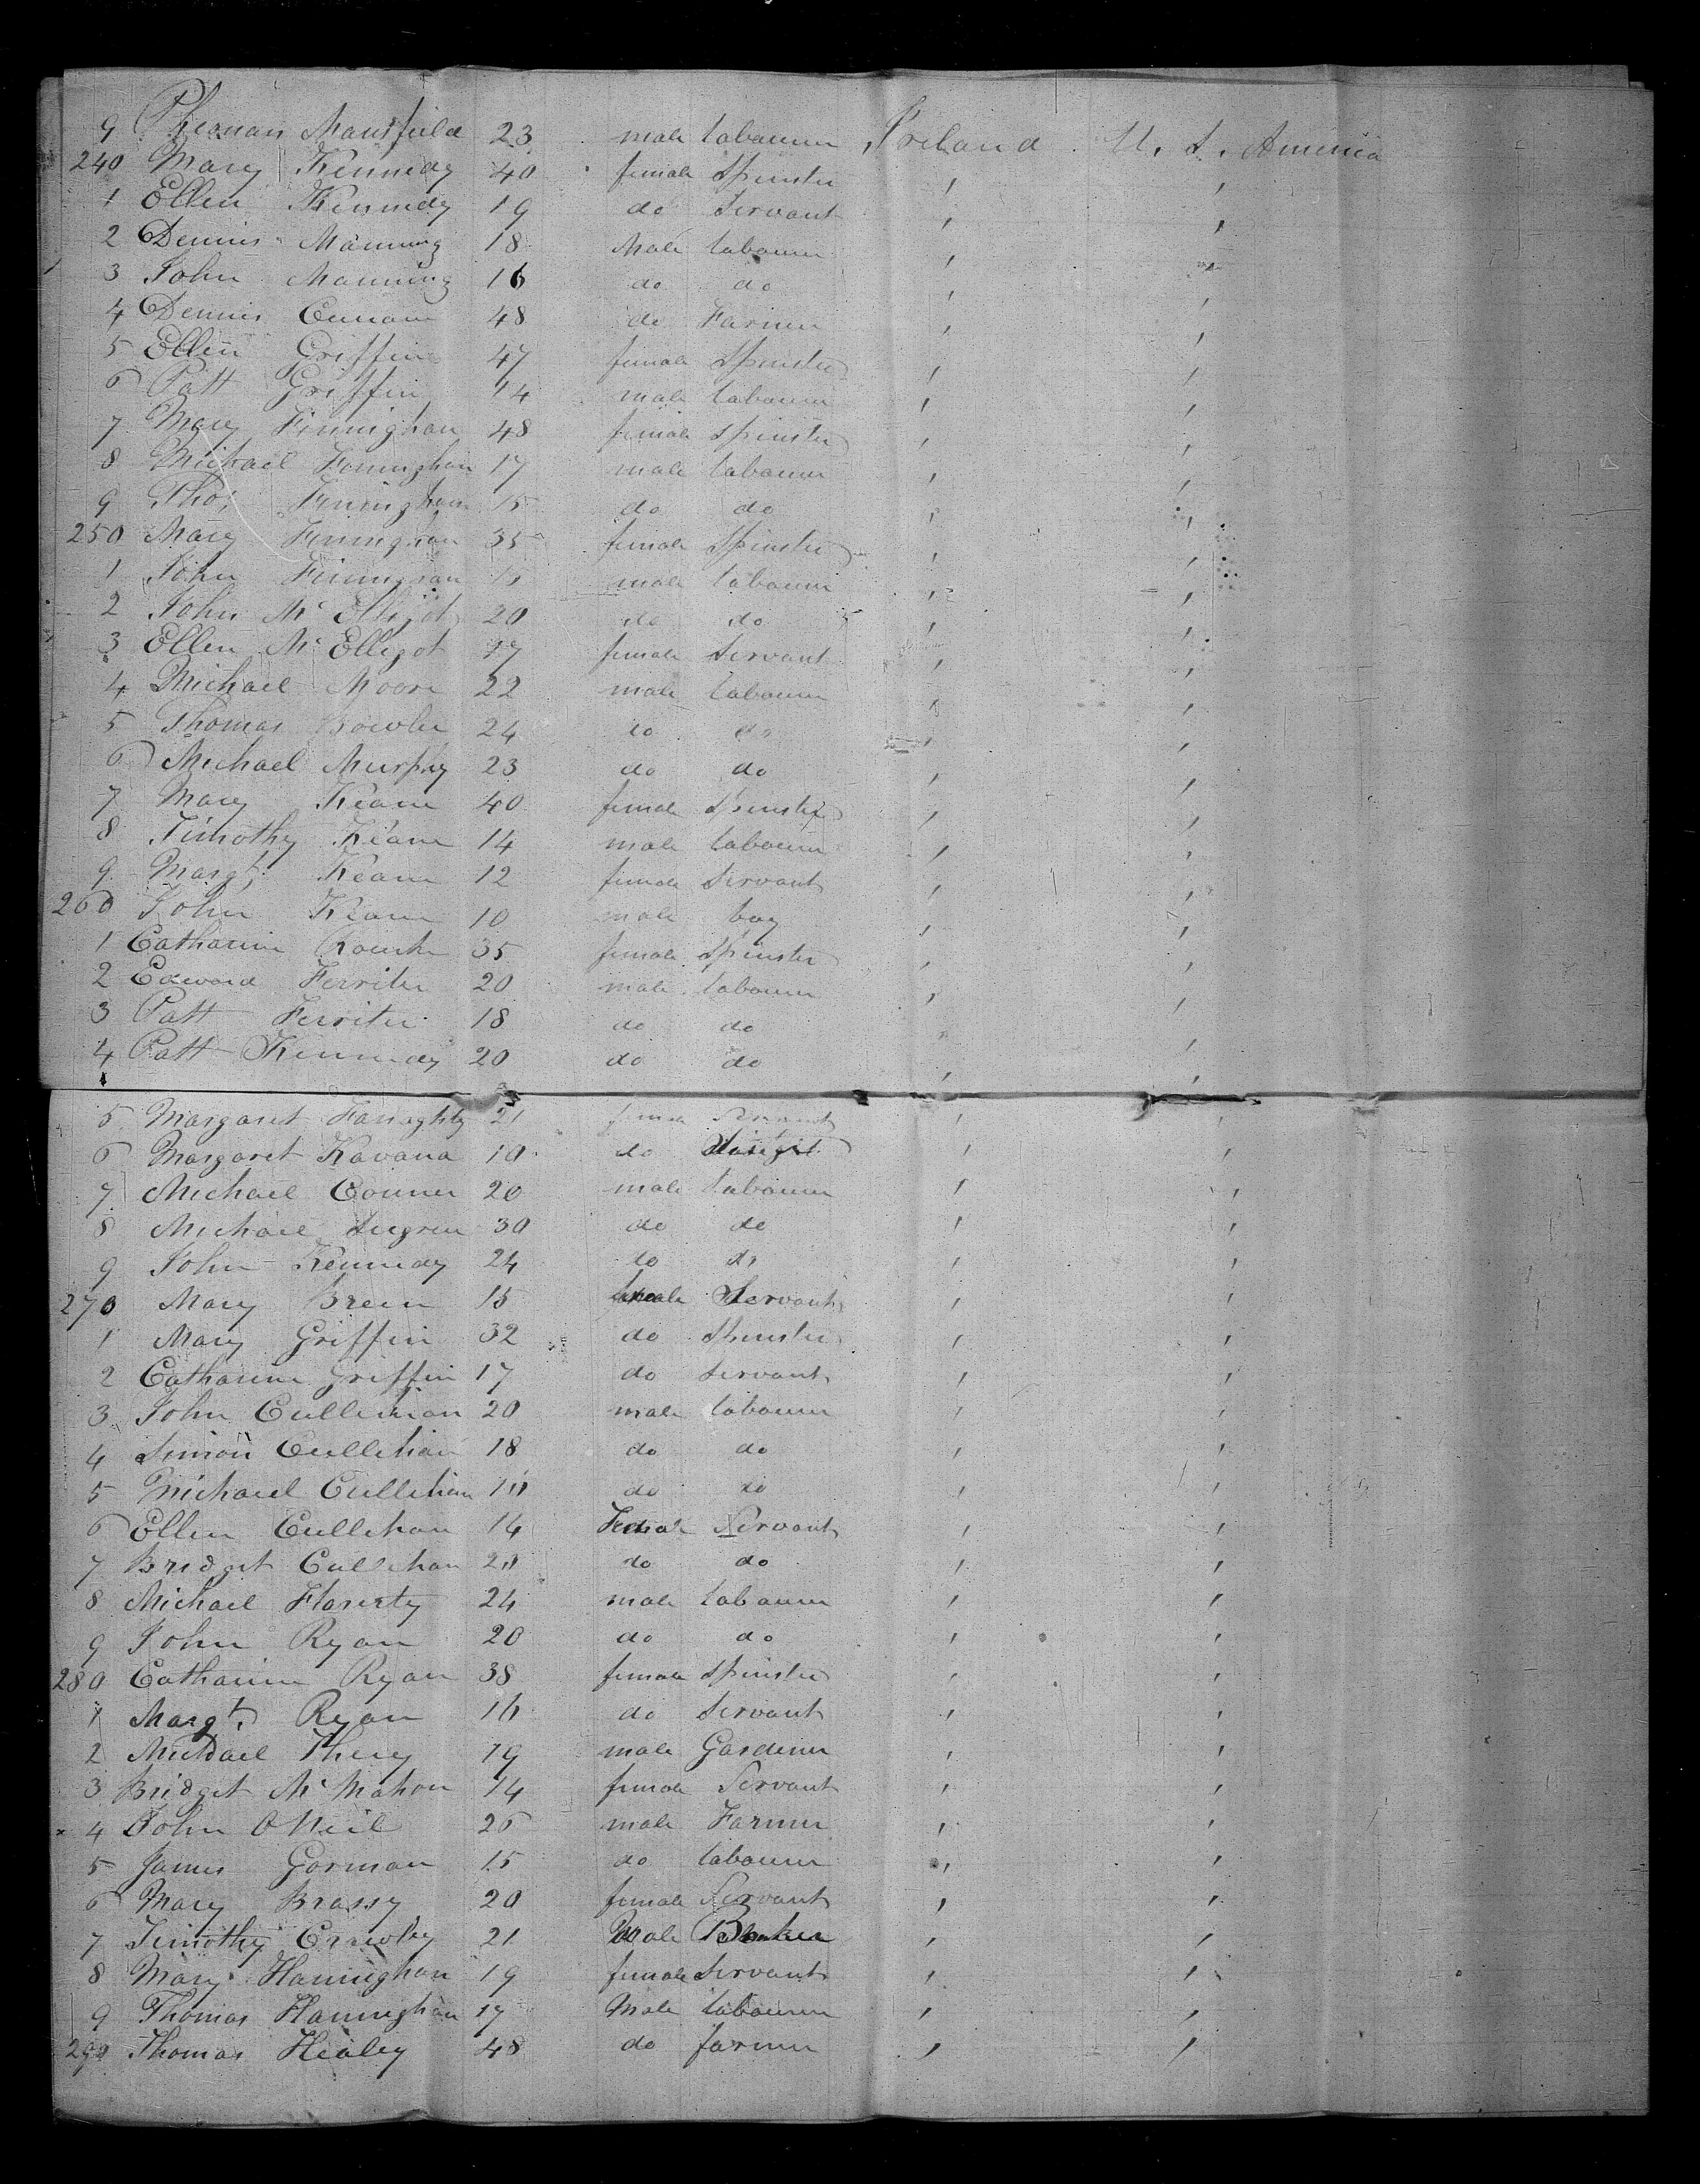 9 Mansfield 23 male labourer Ireland U. S. America
240 Mary Kennedy 40 female Spinster , ,
1 Ellen Kennedy 19 do Servant , ,
2 Dennis Manning 18 Male labourer , ,
3 John Manning 16 do do , ,
4 Dennis 48 do Farmer , ,
5 Ellen Griffin 47 female Spinster , ,
6 Patt Griffin 14 male labourer , ,
7 Mary Finnighan 48 female Spinster , ,
8 Michael Finnighan 17 male labourer , ,
9 Thos, Finnighan 15 do do , ,
250 Mary Finnighan 35 female Spinster , ,
1 John Finnighan male labourer , ,
2 John Mc Elligot 20 do do , ,
3 Ellen Mc Elligot 17 female Servant , ,
4 Michael Moore 22 male labourer , ,
5 Thomas Bowler 24 do do , ,
6 Michael Murphy 23 do do , ,
7 Mary Keane 40 female Spinster , ,
8 Timothy Keane 14 male labourer , ,
9 Margt, Keane 12 female Servant , ,
260 John Keane 10 male boy , ,
1 Catharine Rourke 35 female Spinster , ,
2 Edward Ferriter 20 male labourer , ,
3 Patt Ferriter 18 do do , ,
4 Patt Kennedy 20 do do , ,
5 Margaret 21 female Servant , ,
6 Margaret Kavana 10 do , ,
7 Michael Conner 20 male labourer , ,
8 Michael Sugrue 30 do do , ,
9 John Kennedy 24 do do , ,
270 Mary Breen 15 female Servant , ,
1 Mary Griffin 32 do Spinster , ,
2 Catharine Griffin 17 do Servant , ,
3 John Cullinan 20 male labourer , ,
4 Simon Cullihan 18 do do , ,
5 Michael Cullihan do do , ,
6 Ellen Cullihan 14 Female Servant , ,
7 Bridget Cullihan do do , ,
8 Michael Flaverty 24 male labourer , ,
9 John Ryan 20 do do , ,
280 Catharine Ryan 38 female Spinster , ,
1 Margt, Ryan 16 do Servant , ,
2 Michael 19 male Gardener , ,
3 Bridget Mc Mahon 14 female Servant , ,
4 John O Neil 26 male Farmer , ,
5 James Gorman 15 do labourer , ,
6 Mary Brassy 20 female Servant , ,
7 Timothy Crowley 21 Male , ,
8 Mary Hannighan 19 female Servant , ,
9 Thomas Hannighan 17 Male labourer , ,
290 Thomas Healey 48 do farmer , ,